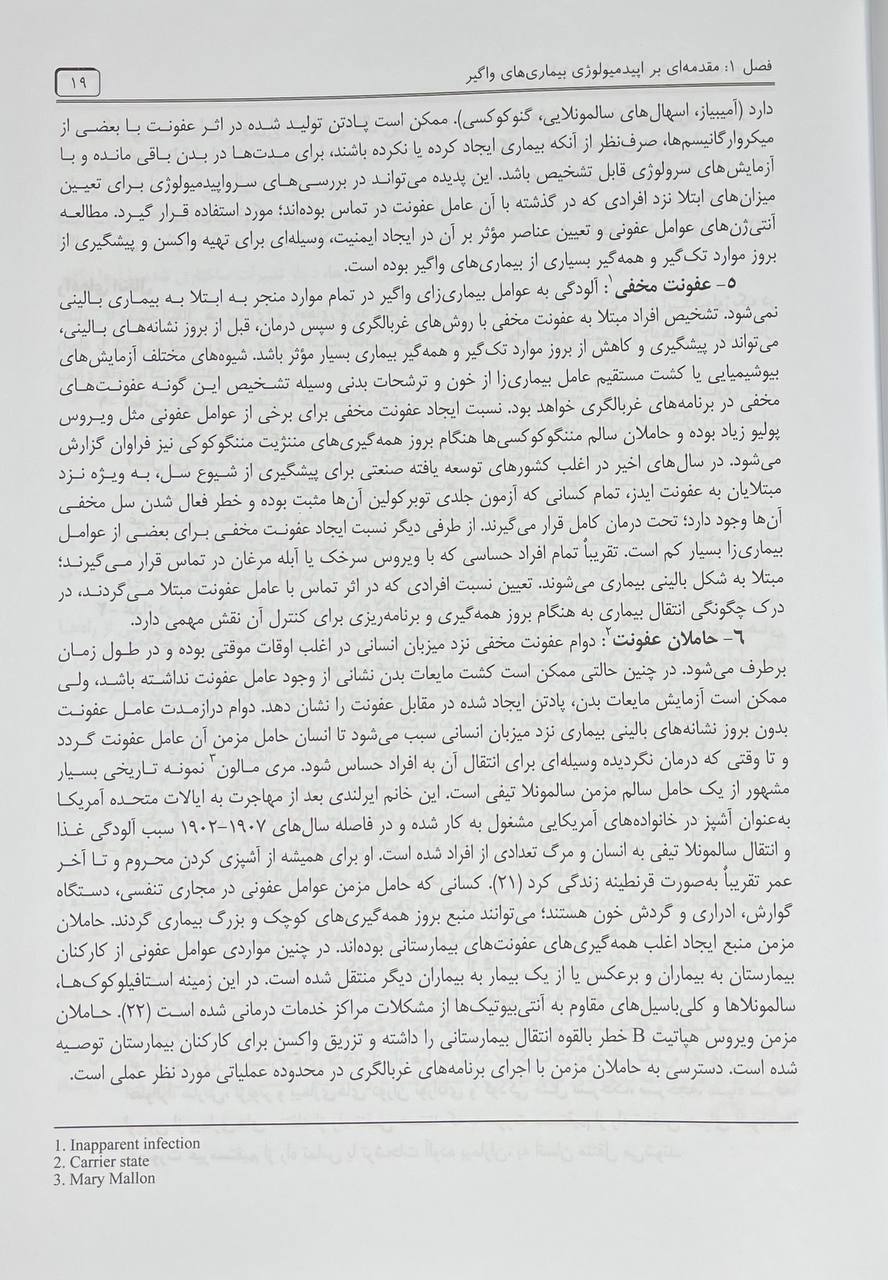 فصل ۱: مقدمه‌ای بر اپیدمیولوژی بیماری‌های واگیر
۱۹
دارد (آمیبیاز، اسهال‌های سالمونلایی، گنوکوکسی). ممکن است پادتن تولید شده در اثر عفونت با بعضی از
میکروارگانیسم‌ها، صرف‌نظر از آنکه بیماری ایجاد کرده یا نکرده باشند، برای مدت‌ها در بدن باقی مانده و با
آزمایش‌های سرولوژی قابل تشخیص باشد. این پدیده می‌تواند در بررسی‌های سرواپیدمیولوژی برای تعیین
میزان‌های ابتلا نزد افرادی که در گذشته با آن عامل عفونت در تماس بوده‌اند؛ مورد استفاده قرار گیرد. مطالعه
آنتی‌ژن‌های عوامل عفونی و تعیین عناصر مؤثر بر آن در ایجاد ایمنیت، وسیله‌ای برای تهیه واکسن و پیشگیری از
بروز موارد تک‌گیر و همه‌گیر بسیاری از بیماری‌های واگیر بوده است.
۵- عفونت مخفی۱: آلودگی به عوامل بیماری‌زای واگیر در تمام موارد منجر به ابتلا به بیماری بالینی
نمی‌شود. تشخیص افراد مبتلا به عفونت مخفی با روش‌های غربالگری و سپس درمان، قبل از بروز نشانه‌های بالینی،
می‌تواند در پیشگیری و کاهش از بروز موارد تک‌گیر و همه‌گیر بیماری بسیار مؤثر باشد. شیوه‌های مختلف آزمایش‌های
بیوشیمیایی یا کشت مستقیم عامل بیماری‌زا از خون و ترشحات بدنی وسیله تشخیص این گونه عفونت‌های
مخفی در برنامه‌های غربالگری خواهد بود. نسبت ایجاد عفونت مخفی برای برخی از عوامل عفونی مثل ویروس
پولیو زیاد بوده و حاملان سالم مننگوکوکسی‌ها هنگام بروز همه‌گیری‌های مننژیت مننگوکوکی نیز فراوان گزارش
می‌شود. در سال‌های اخیر در اغلب کشورهای توسعه یافته صنعتی برای پیشگیری از شیوع سل، به ویژه نزد
مبتلایان به عفونت ایدز، تمام کسانی که آزمون جلدی توبرکولین آن‌ها مثبت بوده و خطر فعال شدن سل مخفی
آن‌ها وجود دارد؛ تحت درمان کامل قرار می‌گیرند. از طرفی دیگر نسبت ایجاد عفونت مخفی برای بعضی از عوامل
بیماری‌زا بسیار کم است. تقریباً تمام افراد حساسی که با ویروس سرخک یا آبله مرغان در تماس قرار می‌گیرند؛
مبتلا به شکل بالینی بیماری می‌شوند. تعیین نسبت افرادی که در اثر تماس با عامل عفونت مبتلا می‌گردند، در
درک چگونگی انتقال بیماری به هنگام بروز همه‌گیری و برنامه‌ریزی برای کنترل آن نقش مهمی دارد.
۶- حاملان عفونت۲: دوام عفونت مخفی نزد میزبان انسانی در اغلب اوقات موقتی بوده و در طول زمان
برطرف می‌شود. در چنین حالتی ممکن است کشت مایعات بدن نشانی از وجود عامل عفونت نداشته باشد، ولی
ممکن است آزمایش مایعات بدن، پادتن ایجاد شده در مقابل عفونت را نشان دهد. دوام درازمدت عامل عفونت
بدون بروز نشانه‌های بالینی بیماری نزد میزبان انسانی سبب می‌شود تا انسان حامل مزمن آن عامل عفونت گردد
و تا وقتی که درمان نگردیده وسیله‌ای برای انتقال آن به افراد حساس شود. مری مالون۳ نمونه تاریخی بسیار
مشهور از یک حامل سالم مزمن سالمونلا تیفی است. این خانم ایرلندی بعد از مهاجرت به ایالات متحده آمریکا
به‌عنوان آشپز در خانواده‌های آمریکایی مشغول به کار شده و در فاصله سال‌های ۱۹۰۷–۱۹۰۲ سبب آلودگی غذا
و انتقال سالمونلا تیفی به انسان و مرگ تعدادی از افراد شده است. او برای همیشه از آشپزی کردن محروم و تا آخر
عمر تقریباً به‌صورت قرنطینه زندگی کرد (۲۱). کسانی که حامل مزمن عوامل عفونی در مجاری تنفسی، دستگاه
گوارش، ادراری و گردش خون هستند؛ می‌توانند منبع بروز همه‌گیری‌های کوچک و بزرگ بیماری گردند. حاملان
مزمن منبع ایجاد اغلب همه‌گیری‌های عفونت‌های بیمارستانی بوده‌اند. در چنین مواردی عوامل عفونی از کارکنان
بیمارستان به بیماران و برعکس یا از یک بیمار به بیماران دیگر منتقل شده است. در این زمینه استافیلوکوک‌ها،
سالمونلاها و کلی‌باسیل‌های مقاوم به آنتی‌بیوتیک‌ها از مشکلات مراکز خدمات درمانی شده است (۲۲). حاملان
مزمن ویروس هپاتیت B خطر بالقوه انتقال بیمارستانی را داشته و تزریق واکسن برای کارکنان بیمارستان توصیه
شده است. دسترسی به حاملان مزمن با اجرای برنامه‌های غربالگری در محدوده عملیاتی مورد نظر عملی است.
1. Inapparent infection
2. Carrier state
3. Mary Mallon